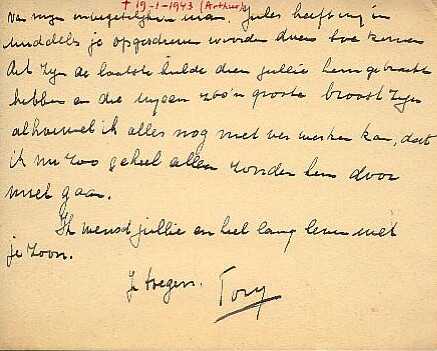 † 19-1-1943 (Arthur)
van mijn onvergetelijken man. Jules heeft mij in
middels je opgedreven woorden doen toe komen
Het zijn de laatste hulde dien jullie hem gebracht
hebben en die mijeen zoo'n groote troost zijn
alhoewel ik alles nog niet verwerken kan, dat
ik nu zoo geheel alleen zonder hem door
moet gaan.
Ik wensch jullie en heel lang leven met
je zoon.
Je
Tony